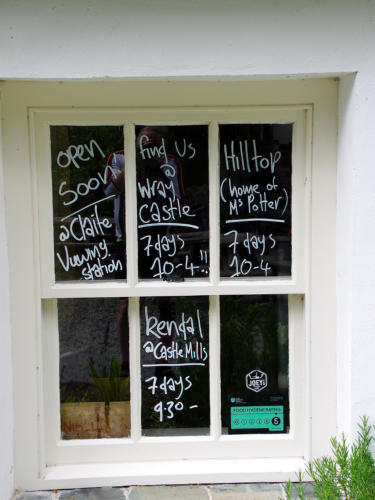 open
soon
@Claife
Viewing
station
find Us
@
Wray
Castle
7days
10-4!!
Hilltop
(home of
Ms Potter)
7days
10-4
kendal
@Castle Mills
7days
9.30-
JOEY'S
FOOD HYGIENE RATING
0 1 2 3 4 5